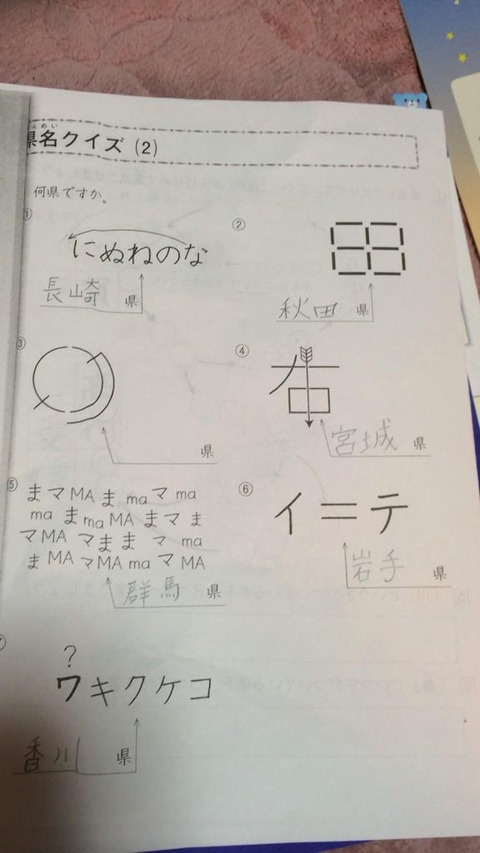 県名クイズ (2)
んめい
何県ですか。
①
にぬねのな
長崎 県
②
秋田 県
③
県
④
右
宮城 県
⑤
まマMAまmaマma
maまmaMAまマま
マMAマままマma
まMAマMAmaマMA
群馬 県
⑥
イ=テ
岩手 県
?
ワキクケコ
香川 県